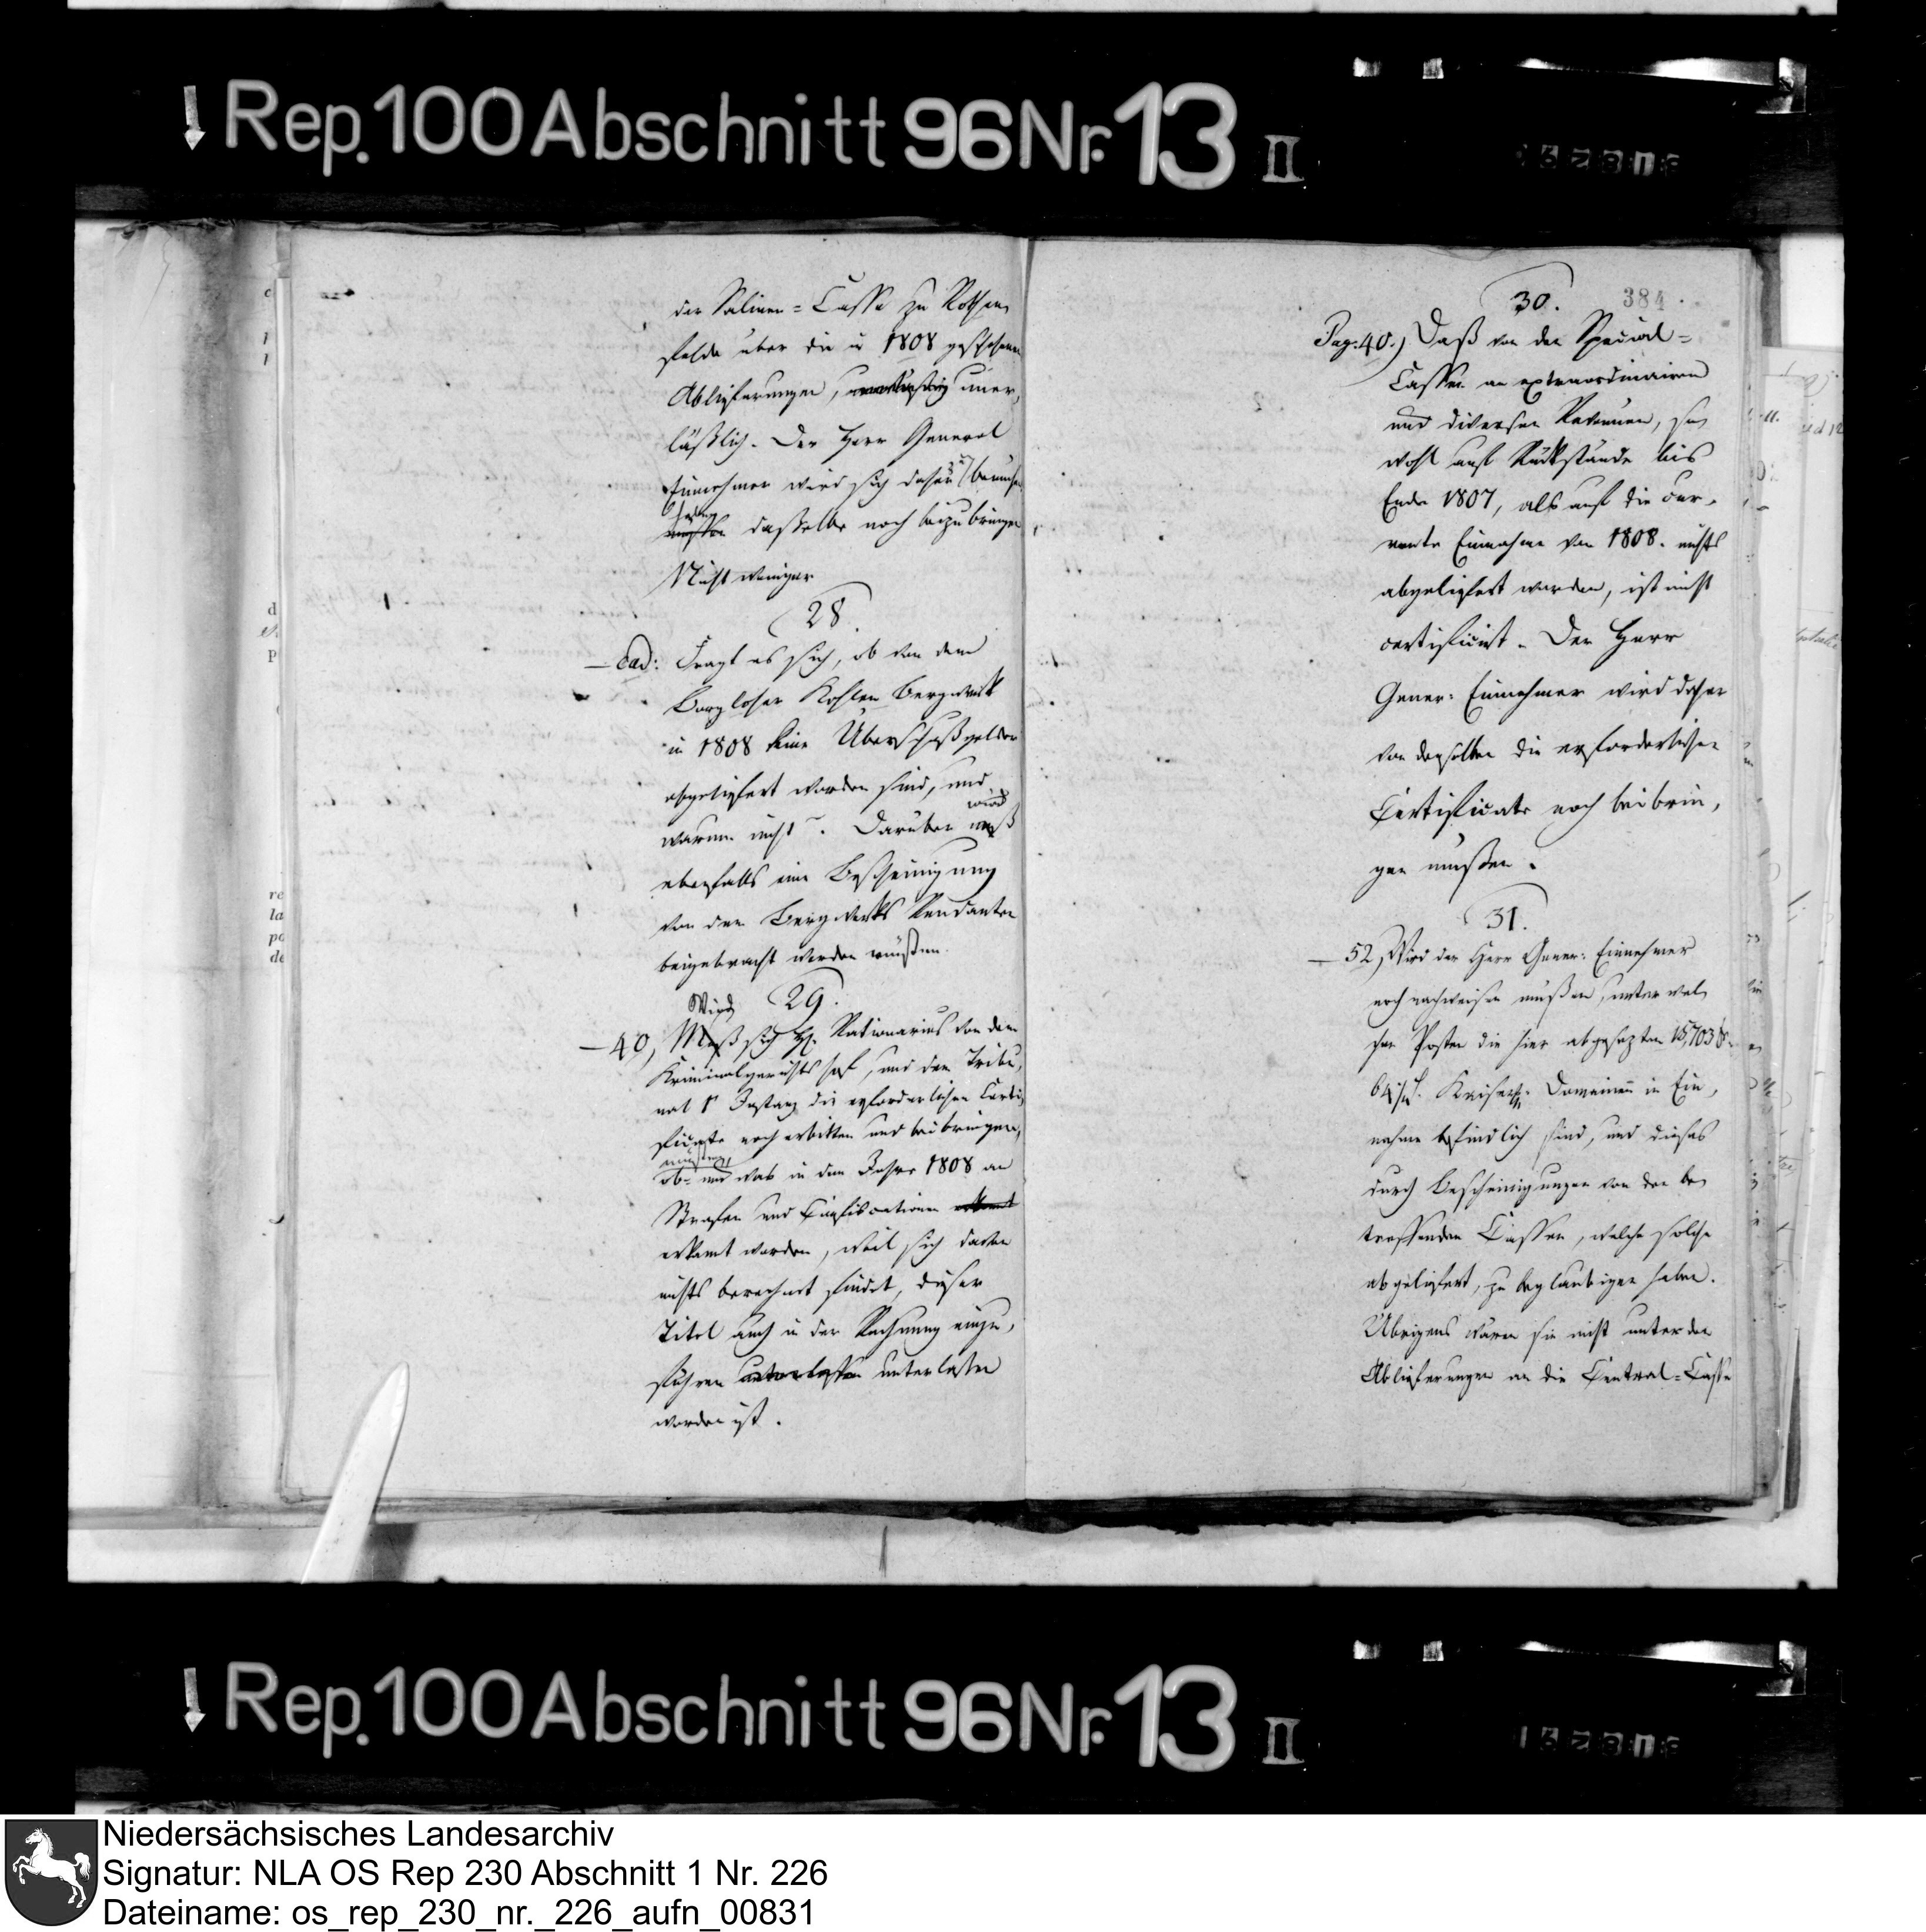 Rep. 100 Abschnitt 96 Nr. 13 II
der Salinen=Casse zu Rothen,
felde über die in 1808 geschehenen
Ablieferungen, uner,
läßlich. Der Herr General
Einnehmer wird sich daher zu bemühen
haben dasselbe noch beizubringen
Nicht weniger
28.
— ead: Fragt es sich, ob von dem
Borgloher Kohlen Bergwerk
in 1808 keine Überschußgelder
abgeliefert worden sind, und
warum nicht? Darüber wird
ebenfalls eine Bescheinigung
von dem Bergwerks Rendanten
beigebracht werden müßen.
29.
— 40, Wird sich H. Rationarius von dem
Kriminalgerichtshof, und dem Tribu,
nal 1r Instanz die erforderlichen Certi,
ficate noch erbitten und beibringen,
müssen,
ob und was in dem Jahre 1808 an
Strafen und Confiscationen
erkannt worden, weil sich davon
nichts berechnet findet, dieser
Titel auch in der Rechnung einzu,
führen unterlassen unterlaßen
worden ist.
384.
30.
Pag: 40.) Daß von den Special=
Cassen an extraordinairen
und diversen Revenüen, so,
wohl auf Rückstände bis
Ende 1807, als auf die cur,
rente Einnahme von 1808. nichts
abgeliefert worden, ist nicht
certificirt. Der Herr
Gener: Einnehmer wird daher
von denselben die erforderlichen
Certificate noch beibrin,
gen müßen.
31.
— 52, Wird der Herr Gener: Einnehmer
noch nachweisen müßen, unter wel,
chen Posten die hier abgesezten 15,703
64 Kaiserl: Domainen in Ein,
nahme befindlich sind, und dieses
durch Bescheinigungen von den be,
treffenden Cassen, welche solche
abgeliefert, zu beglaubigen haben.
Übrigens wären sie nicht unter den
Ablieferungen an die Central=Casse
Rep. 100 Abschnitt 96 Nr. 13 II
Niedersächsisches Landesarchiv
Signatur: NLA OS Rep 230 Abschnitt 1 Nr. 226
Dateiname: os_rep_230_nr._226_aufn_00831